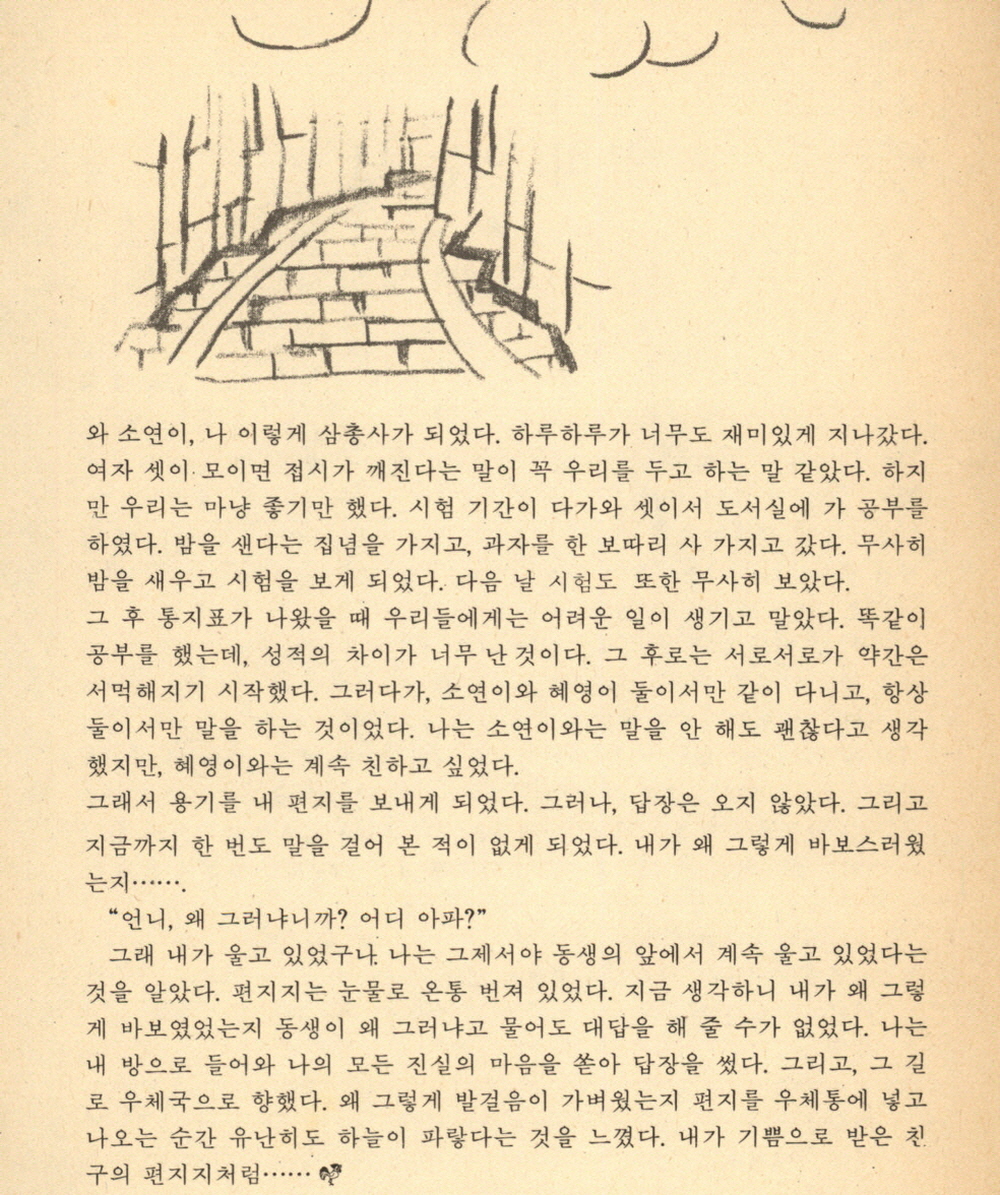 와 소연이, 나 이렇게 삼총사가 되었다. 하루하루가 너무도 재미있게 지나갔다.
여자 셋이 모이면 접시가 깨진다는 말이 꼭 우리를 두고 하는 말 같았다. 하지
만 우리는 마냥 좋기만 했다. 시험 기간이 다가와 셋이서 도서실에 가 공부를
하였다. 밤을 샌다는 집념을 가지고, 과자를 한 보따리 사 가지고 갔다. 무사히
밤을 새우고 시험을 보게 되었다. 다음 날 시험도 또한 무사히 보았다.
그 후 통지표가 나왔을 때 우리들에게는 어려운 일이 생기고 말았다. 똑같이
공부를 했는데, 성적의 차이가 너무 난 것이다. 그 후로는 서로서로가 약간은
서먹해지기 시작했다. 그러다가, 소연이와 혜영이 둘이서만 같이 다니고, 항상
둘이서만 말을 하는 것이었다. 나는 소연이와는 말을 안 해도 괜찮다고 생각
했지만, 혜영이와는 계속 친하고 싶었다.
그래서 용기를 내 편지를 보내게 되었다. 그러나, 답장은 오지 않았다. 그리고
지금까지 한 번도 말을 걸어 본 적이 없게 되었다. 내가 왜 그렇게 바보스러웠
는지…….
“언니, 왜 그러냐니까? 어디 아파?”
그래 내가 울고 있었구나. 나는 그제서야 동생의 앞에서 계속 울고 있었다는
것을 알았다. 편지지는 눈물로 온통 번져 있었다. 지금 생각하니 내가 왜 그렇
게 바보였었는지 동생이 왜 그러냐고 물어도 대답을 해 줄 수가 없었다. 나는
내 방으로 들어와 나의 모든 진실의 마음을 쏟아 답장을 썼다. 그리고, 그 길
로 우체국으로 향했다. 왜 그렇게 발걸음이 가벼웠는지 편지를 우체통에 넣고
나오는 순간 유난히도 하늘이 파랗다는 것을 느꼈다. 내가 기쁨으로 받은 친
구의 편지지처럼……